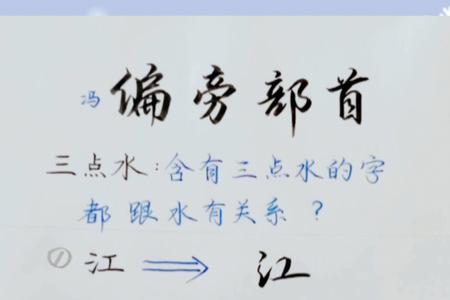 冯 偏旁部首
三点水：含有三点水的字
都跟水有关系？
① 江 ⟹ 江